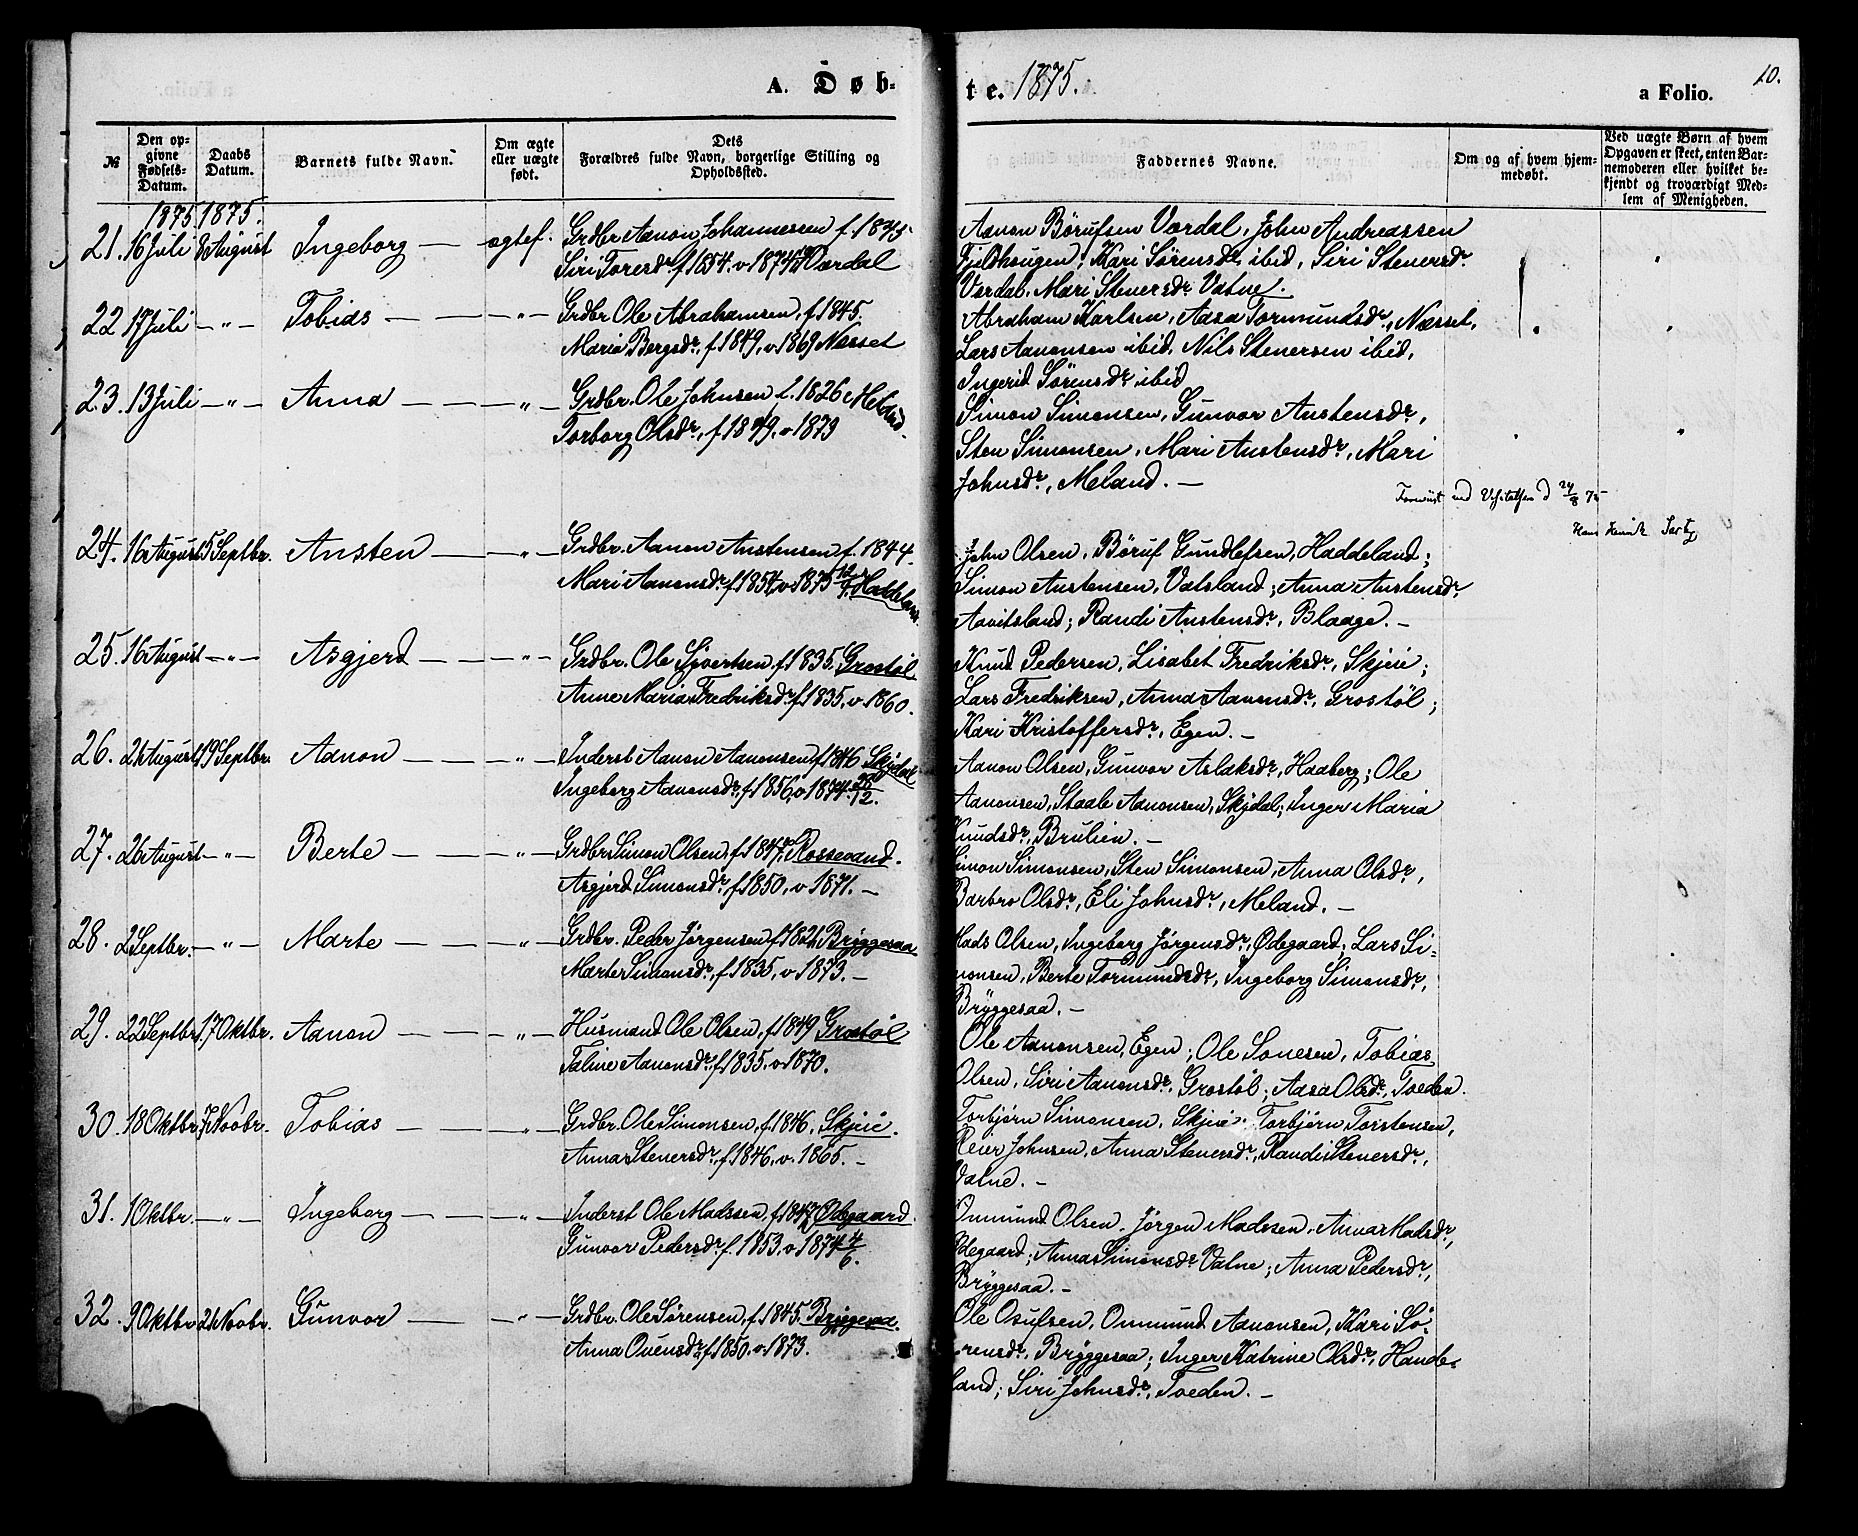 A. Døb-
№
Den op-
givne
Fødsels-
Datum.
Daabs
Datum.
Barnets fulde Navn.
Om ægte
eller uægte
født.
Dets
Forældres fulde Navn, borgerlige Stilling og
Opholdssted.
1875 1875.
21. 16 Juli 8 August Ingeborg — ægtef. Grdbr. Aanon Johannessen f. 1845
Siri Toresdr. f. 1854. v. 1874 Vordal
22 17 Juli — " — Tobias — — " — Grdbr Ole Abrahamsen, f. 1845.
Maria Bergsdr., f. 1849, v. 1869 Næsset
23. 13 Juli — " — Anna — — " — Grdbr. Ole Johnsen f. 1826 Meland.
Torborg Olsdr., f. 1849. v. 1873
24. 16 August 5 Septbr. Austen — " — Grdbr. Aanon Austensen f. 1844.
Mari Aanonsdr. f. 1854, v. 1875 Haddeland
25. 16 August — " — Asgjerd — — " — Grdbr. Ole Sjvertsen, f. 1835. Grostøl
Anne Maria Fredriksdr. f. 1835, v. 1860.
26. 21 August 19 Septbr. Aanon — " — Inderst Aanon Aanonsen f. 1846 Skjdal
Ingeborg Aanonsdr., f. 1856, v. 1874. 26/12.
27. 26 August — " — Berte — — " — Grdbr Simon Olsen, f. 1847, Rossevand.
Asgjerd Simonsdr., f. 1850, v. 1871. —
28. 2 Septbr. — " — Marte — — " — Grdbr. Peder Jørgensen f. 1821, Bryggesaa
Marte Simonsdr., f. 1835, v. 1873. —
29. 22 Septbr. 17 Oktbr. Aanon — — " — Husmand Ole Olsen, f. 1849 Grostøl
Taline Aanonsdr., f. 1835, v. 1870.
30. 18 Oktbr. 7 Novbr. Tobias — — " — Grdbr. Ole Simonsen, f. 1846, Skjeie.
Anna Stenersdr., f. 1846, v. 1865. —
31. 1 Oktbr. — " — Ingeborg — — " — Inderst Ole Madssen, f. 1847, Ødegaard.
Gunvor Pedersdr. f. 1853, v. 1874 4/6.
32. 9 Oktbr. 21 Novbr. Gunvor — — " — Grdbr. Ole Sørensen, f. 1845. Bryggesaa.
Anna Ouensdr. f. 1850, v. 1873.
te. 1875.
a Folio.
10.
Faddernes Navne.
Om og af hvem hjem-
medøbt.
Ved uægte Børn af hvem
Opgaven er skeet, enten Bar-
nemoderen eller hvilket be-
kjendt og troværdigt Med-
lem af Menigheden.
Aanon Børufsen Vordal, John Andreassen
Fjeldhougen, Kari Sørensdr. ibid, Siri Stenersdr.
Vordal. Mari Stenersdr. Vatne.
Abraham Karlsen, Aasa Tormundsdr., Næsset,
Lars Aanonsen ibid, Nils Stenersen ibid,
Ingerid Sørensdr. ibid
Simon Simonsen, Gunvor Austensdr.,
Sten Simonsen, Mari Austensdr., Mari
Johnsdr., Meland. —
ved Visitatsen d 24/8 75
John Olsen, Børuf Gundlefsen, Haddeland;
Simon Austensen, Vatsland; Anna Austensdr.
Aavitsland; Randi Austensdr. Blaage. —
Knud Pedersen, Lisabet Fredriksdr., Skjeie;
Lars Fredriksen, Anna Aanonsdr., Grostøl;
Kari Kristoffersdr., Egen. —
Aanon Olsen, Gunvor Aslaksdr., Haaberg; Ole
Aanonsen, Staale Aanonsen, Skjdal; Inger Maria
Knudsdr., Brulien. —
Simon Simonsen, Sten Simonsen, Anna Olsdr.,
Barbro Olsdr., Eli Johnsdr., Meland. —
Mads Olsen, Ingeborg Jørgensdr., Ødegaard; Lars Si-
monsen, Berte Tormundsdr., Ingeborg Simonsdr.,
Bryggesaa. —
Ole Aanonsen, Egen; Ole Sonesen, Tobias
Olsen, Siri Aanonsdr., Grostøl; Aasa Olsdr., Tveden.
Torbjørn Simonsen, Skjeie. Torbjørn Torstensen,
Reier Johnsen, Anna Stenersdr., Randi Stenersdr.,
Vatne. —
Ommund Olsen, Jørgen Madssen, Anna Madsdr.,
Ødegaard; Anna Simonsdr. Vatne; Anna Pedersdr.,
Bryggesaa. —
Ole Osufsen, Ommund Aanonsen, Kari Sø-
rensdr., Bryggesaa; Inger Katrine Olsdr., Hande-
land; Siri Johnsdr., Tveden. —